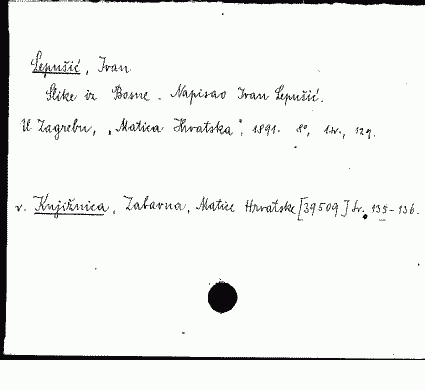 Lepušić, Ivan
Slike iz Bosne. Napisao Ivan Lepušić.
U Zagrebu, „Matica Hrvatska", 1891. 8°, 129.
v. Knjižnica, Zabavna, Matice Hrvatske [39509] 135-136.